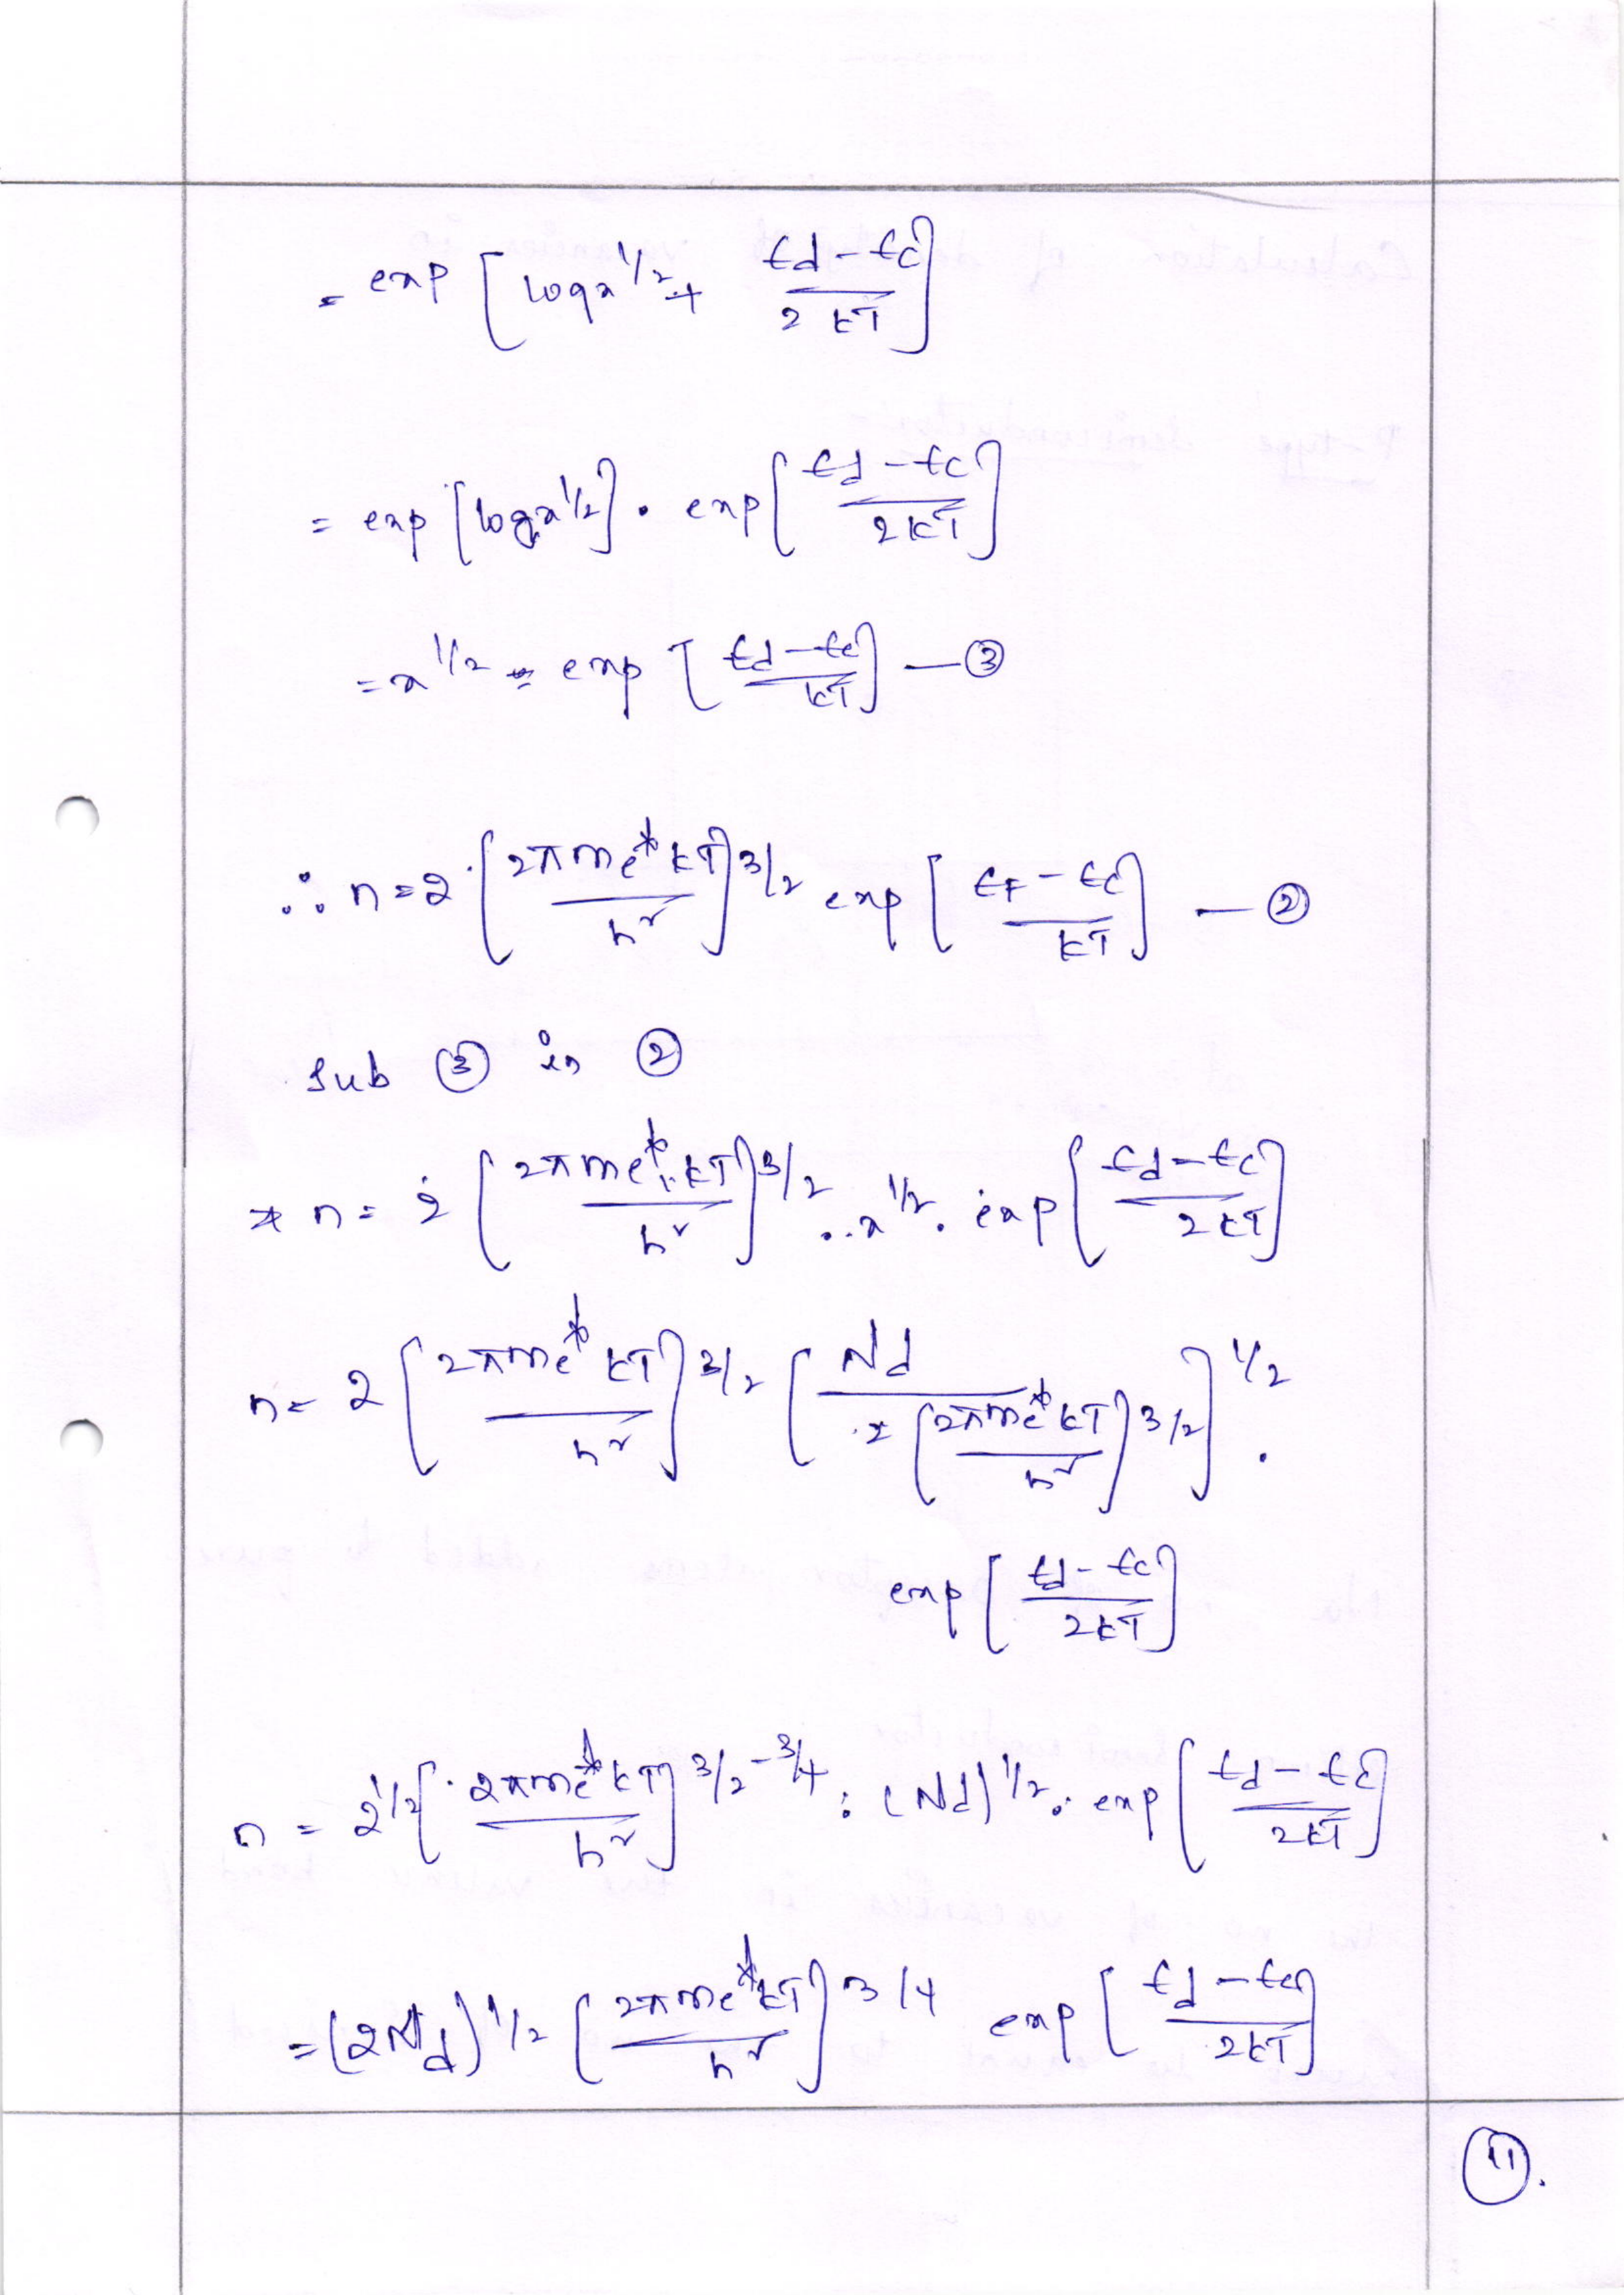 = exp [log x^1/2 + Ed - Ec / 2kT]
= exp [log x^1/2] . exp [Ed - Ec / 2kT]
= x^1/2 = exp [Ed - Ec / kT] — ③
∴ n = 2 [2π me* kT / h²]^3/2 exp [EF - Ec / kT] — ②
Sub ③ in ②
n = 2 [2π me* kT / h²]^3/2 . x^1/2 . exp [Ed - Ec / 2kT]
n = 2 [2π me* kT / h²]^3/2 [Nd / 2 [2π me* kT / h²]^3/2]^1/2 .
exp [Ed - Ec / 2kT]
n = 2^1/2 [2π me* kT / h²]^3/2 - 3/4 . (Nd)^1/2 . exp [Ed - Ec / 2kT]
= (2Nd)^1/2 [2π me* kT / h²]^3/4 exp [Ed - Ec / 2kT]
11.